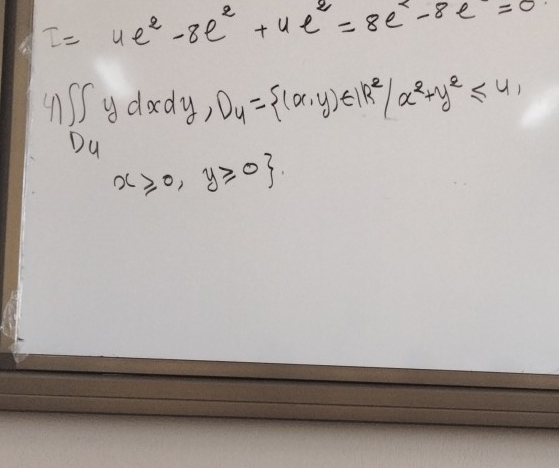 I = 4e² - 8e² + 4e² = 8e² - 8e² = 0
4) ∬ y dxdy, D₄ = {(x,y) ∈ ℝ² / x² + y² ≤ 4,
D₄
x ≥ 0, y ≥ 0}.